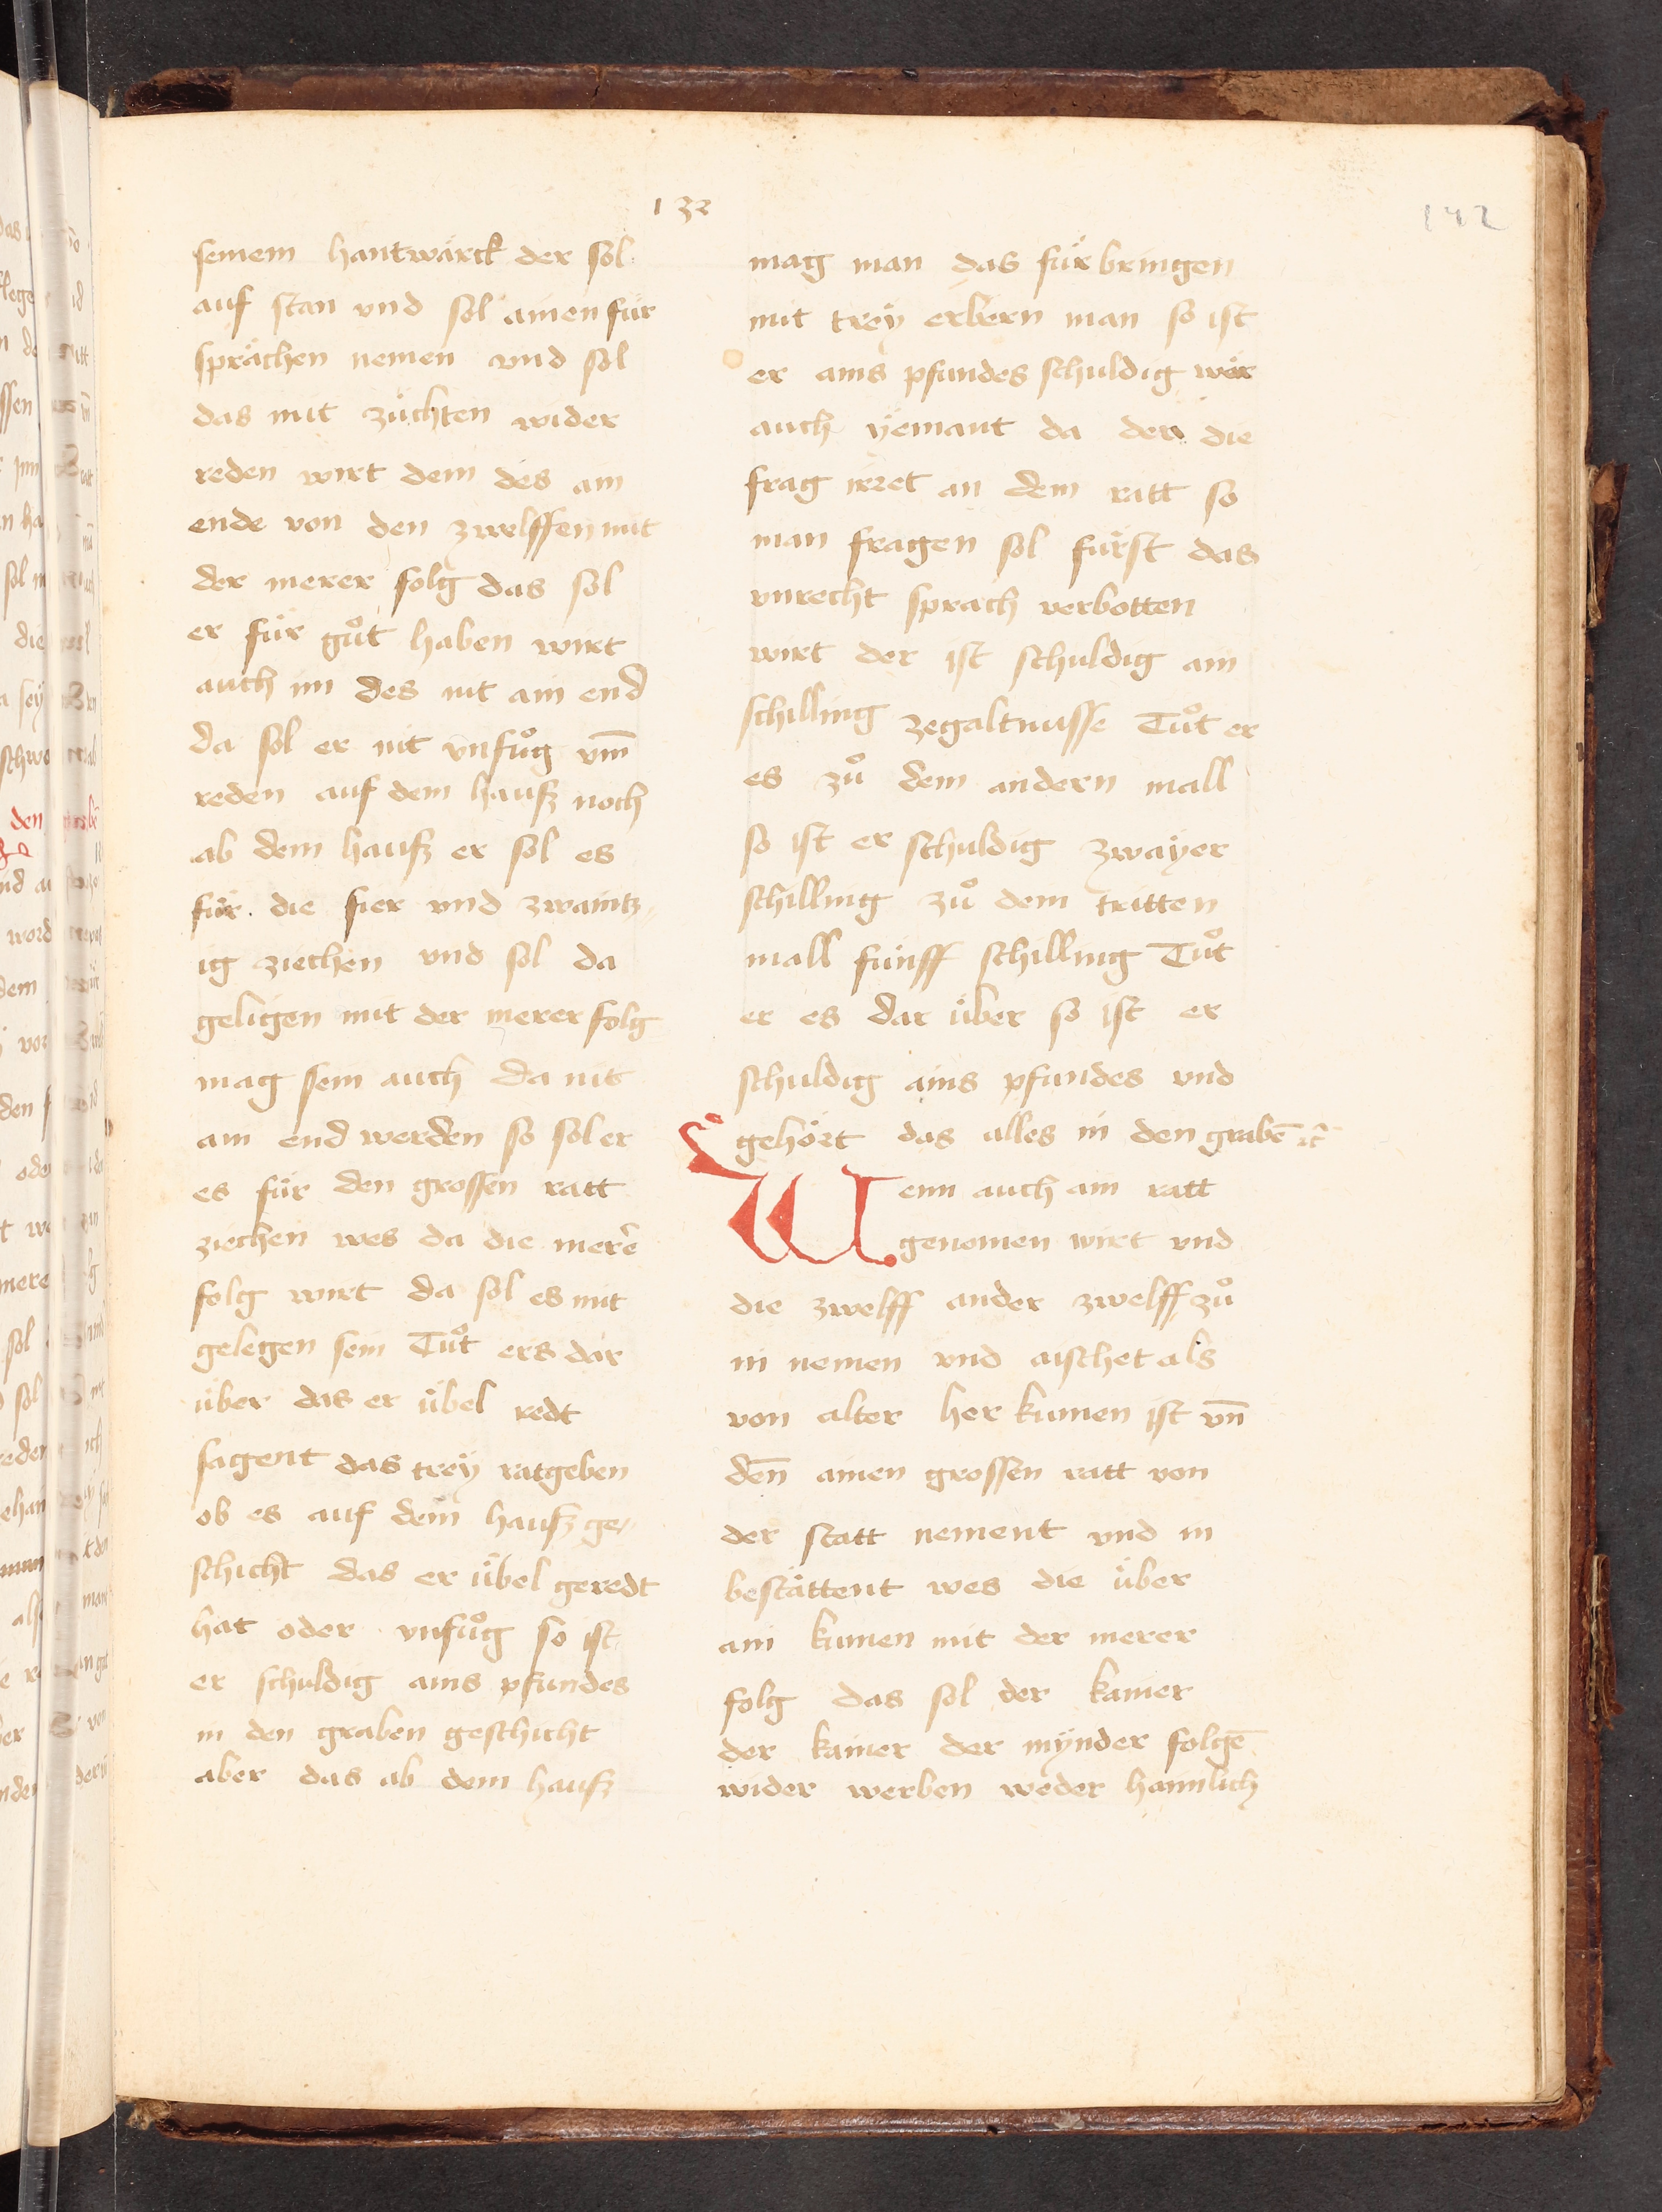 132
142
seinem hantwärck der sol
auf stan vnd sol ainen für
sprächen nemen vnd sol
das mit züchten wider
reden wirt dem des ain
ende von den zwelffen mit
der merer folg das sol
er für gůt haben wirt
auch im des nit ain end
da sol er nit vnfůg vm̄
reden auf dem hausz noch
ab dem hausz er sol es
für die fier vnd zwaintz„
ig ziechen vnd sol da
geligen mit der merer folg
mag sein auch da nit
ain end werden so sol er
es für den grossen ratt
ziechen wes da die merer̄
folg wirt da sol es mit
gelegen sein Tůt ers dar
über das er übel redt
sagent das treÿ ratgeben
ob es auf dem hausz ge„
schicht das er übel geredt
hat oder vnfůg so ist
er schuldig ains pfundes
in den graben geschicht
aber das ab dem hausz
mag man das fürbringen
mit treÿ erbern man so ist
er ains pfundes schuldig wär
auch ÿemant da der die
frag irret an dem ratt so
man fragen sol fürst das
vnrecht sprach verbotten
wirt der ist schuldig ain
schilling zegaltnusse Tůt er
es zů dem andern mall
so ist er schuldig zwaÿer
schilling zů dem tritten
mall fünff schilling Tůt
er es dar über so ist er
schuldig ains pfundes vnd
gehört das alles in den grabē ꝛc̄
Wenn auch ain ratt
genomen wirt vnd
die zwelff ander zwelff zů
in nemen vnd aischet als
von alter her kumen ist vn̄
den̄ ainen grossen ratt von
der statt nement vnd in
bestättent wes die über
ain kumen mit der merer
folg das sol der kainer
der kainer der mÿnder folgē
wider werben weder haimlich